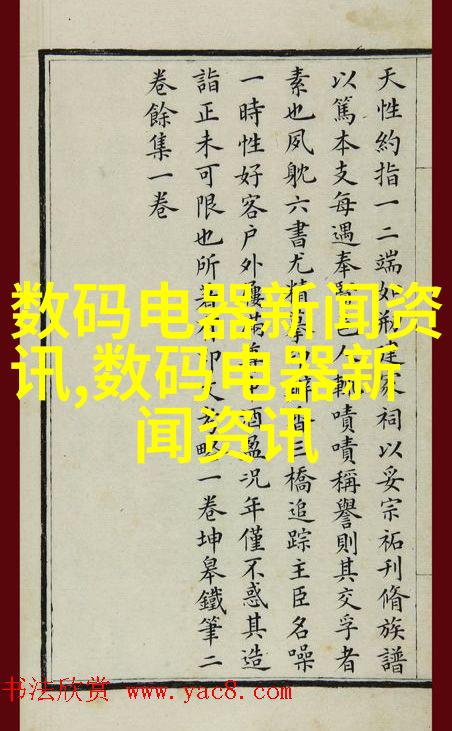 天性約指一二端如建祠以妥宗祏刊脩族譜
以篤本支每遇奉邑人輒嘖嘖稱譽則其交孚者
素也夙躭六書尤精摹三橋追踪主臣名噪
一時性好客户外屨酒盈況年僅不惑其造
詣正未可限也所著印文略一卷坤皋鐵筆二
卷餘集一卷
数码电器新闻资
讯,数码电器新
闻资讯
书法欣赏 www.yac8.com